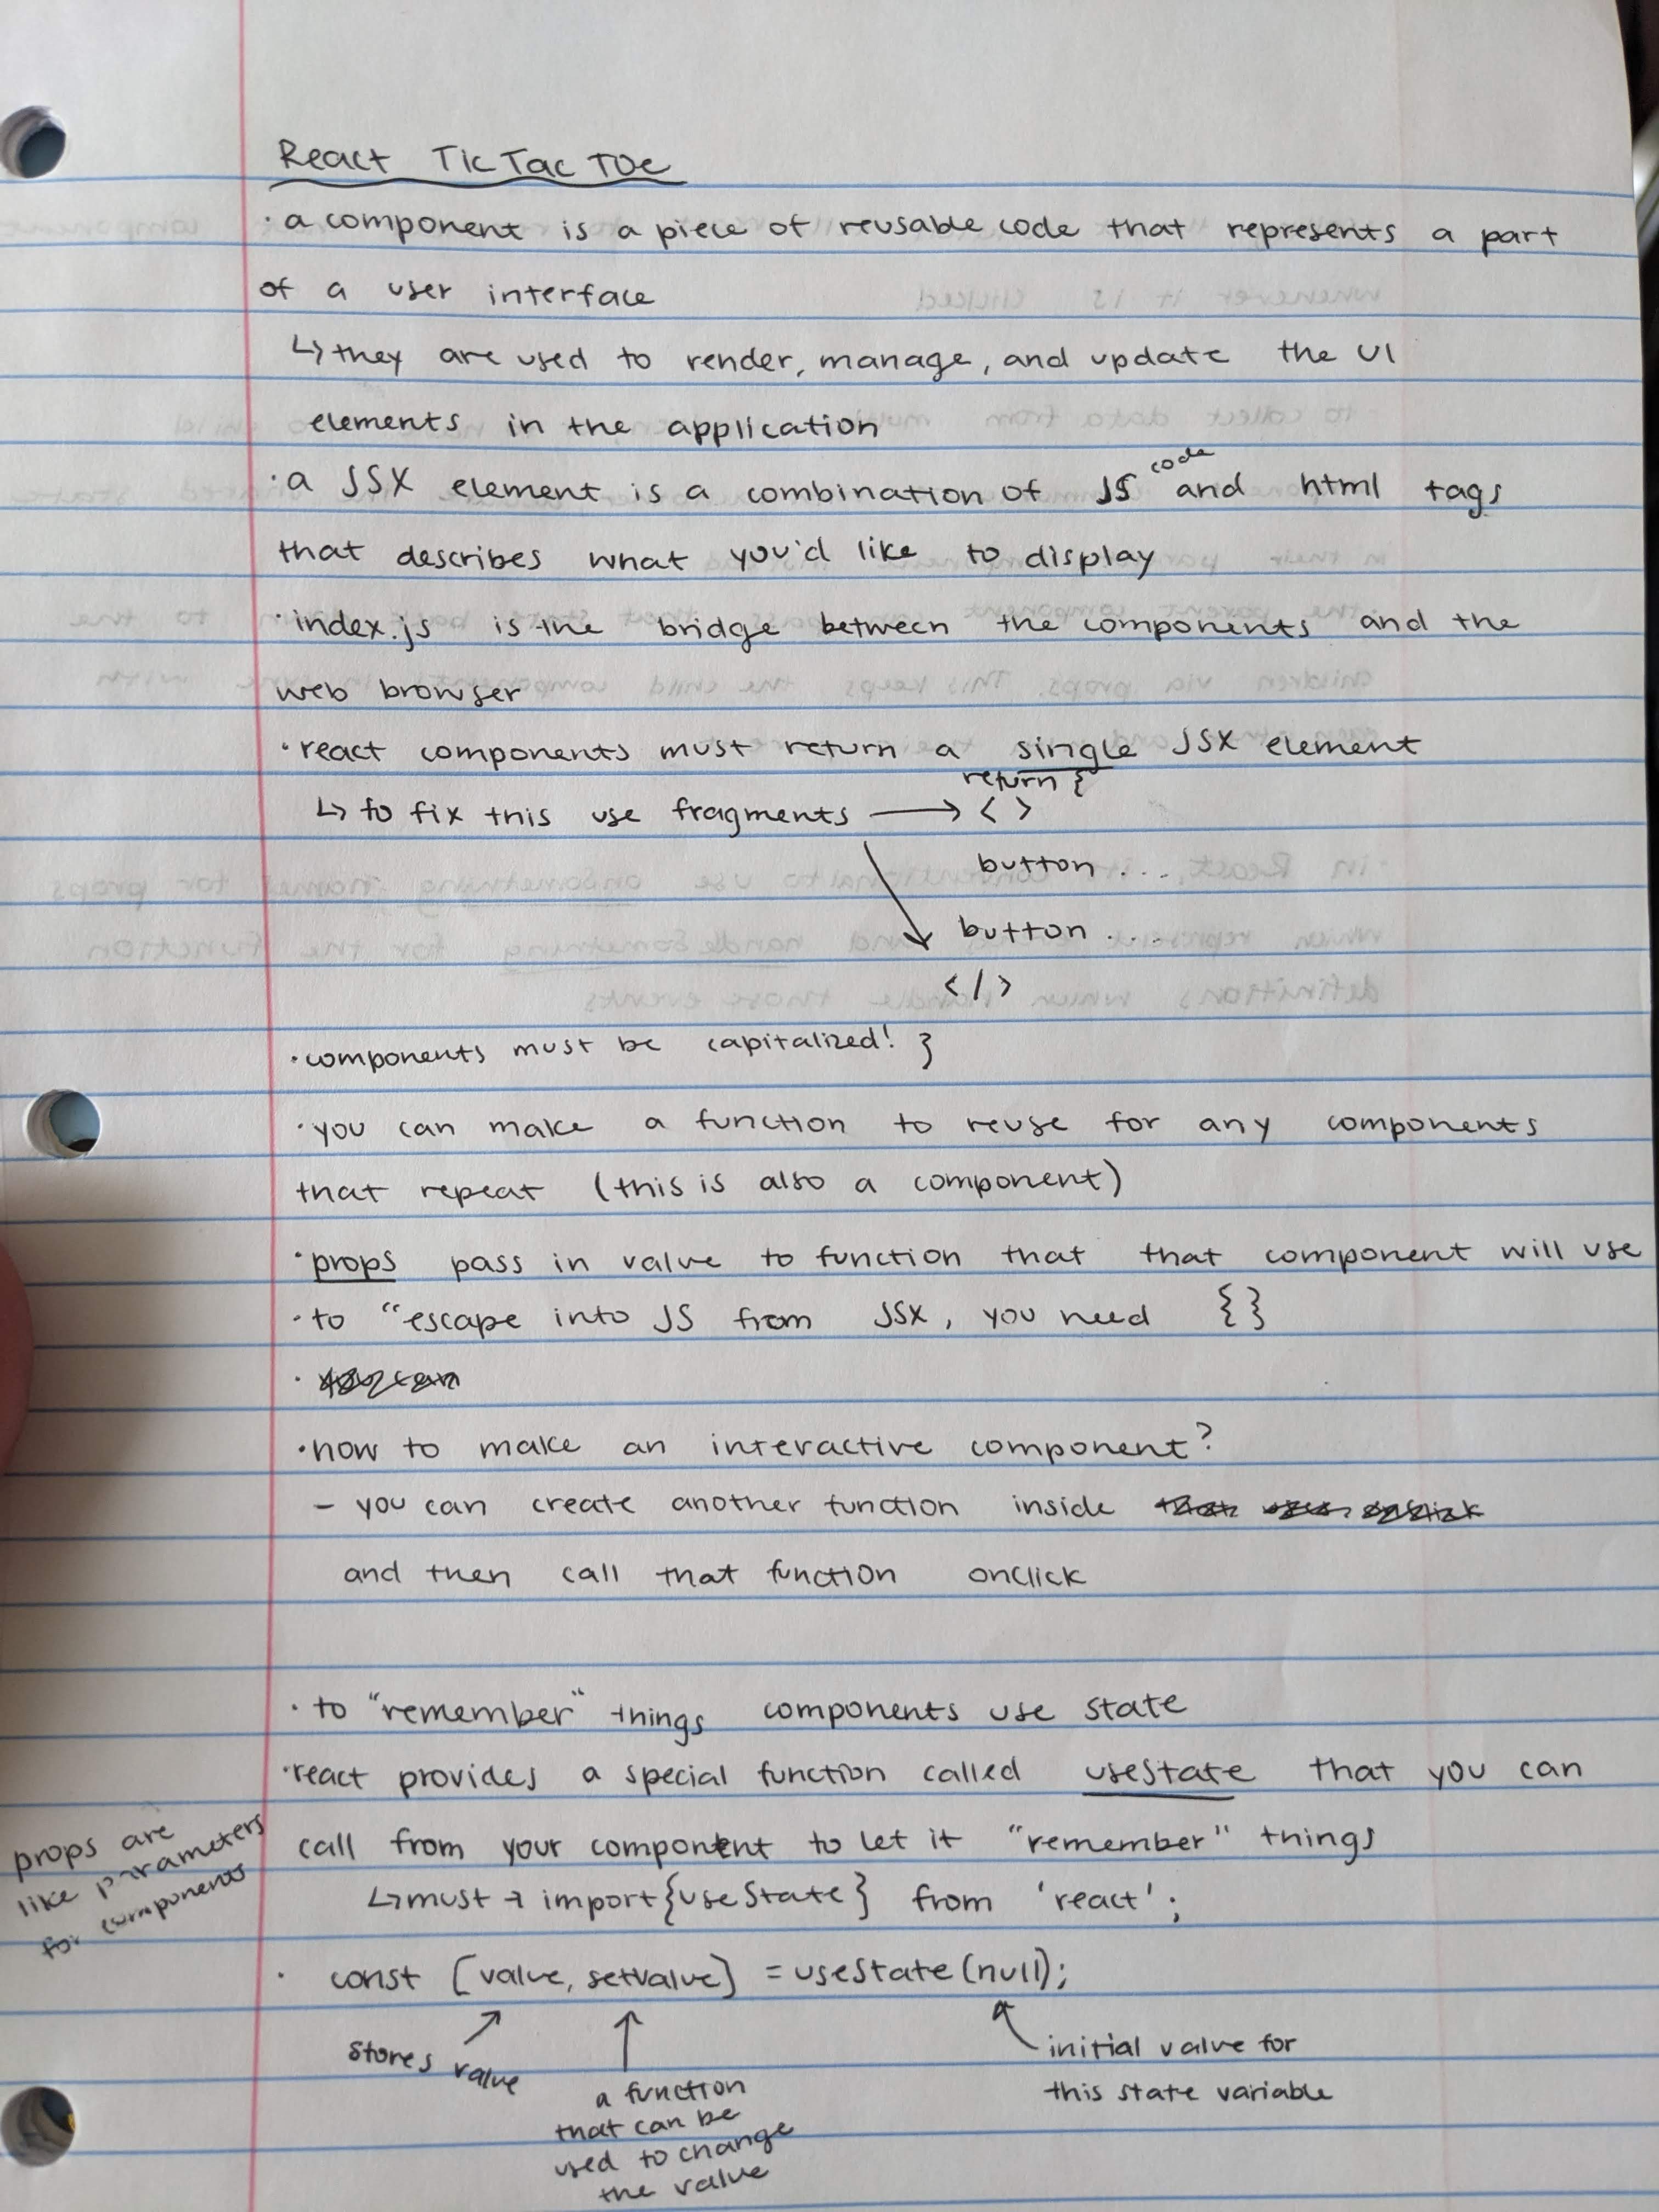 React Tic Tac Toe
· a component is a piece of reusable code that represents a part
of a user interface
↳ they are used to render, manage, and update the UI
elements in the application
· a JSX element is a combination of JS code and html tags
that describes what you'd like to display
· index.js is the bridge between the components and the
web browser
· react components must return a single JSX element
return {
↳ to fix this use fragments → < >
button ....
button ....
</>
· components must be capitalized! }
· you can make a function to reuse for any components
that repeat (this is also a component)
· props pass in value to function that that component will use
· to "escape into JS from JSX, you need { }
·
· how to make an interactive component?
- you can create another function inside
and then call that function onclick
· to "remember" things components use state
· react provides a special function called useState that you can
call from your component to let it "remember" things
↳ must → import {useState} from 'react';
props are
like parameters
for components
· const [value, setValue] = useState(null);
stores value
a function
that can be
used to change
the value
initial value for
this state variable